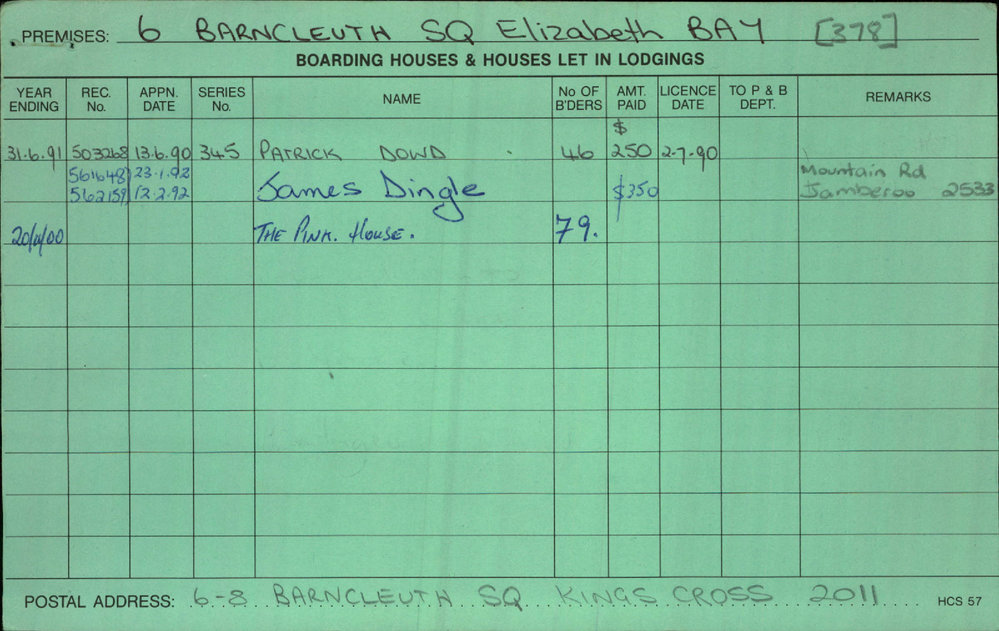 PREMISES: 6 BARNCLEUTH SQ Elizabeth BAY [378]
BOARDING HOUSES & HOUSES LET IN LODGINGS
YEAR ENDING REC. No. APPN. DATE SERIES No. NAME No OF B'DERS AMT. PAID LICENCE DATE TO P & B DEPT. REMARKS
$
31.6.91 503268 13.6.90 345 PATRICK DOWD 46 250 2.7.90
561648 23.1.92 Mountain Rd
562159 12.2.92 James Dingle $350 Jamberoo 2533
THE PINK. HOUSE. 79.
POSTAL ADDRESS: 6-8 BARNCLEUTH SQ KINGS CROSS 2011 HCS 57